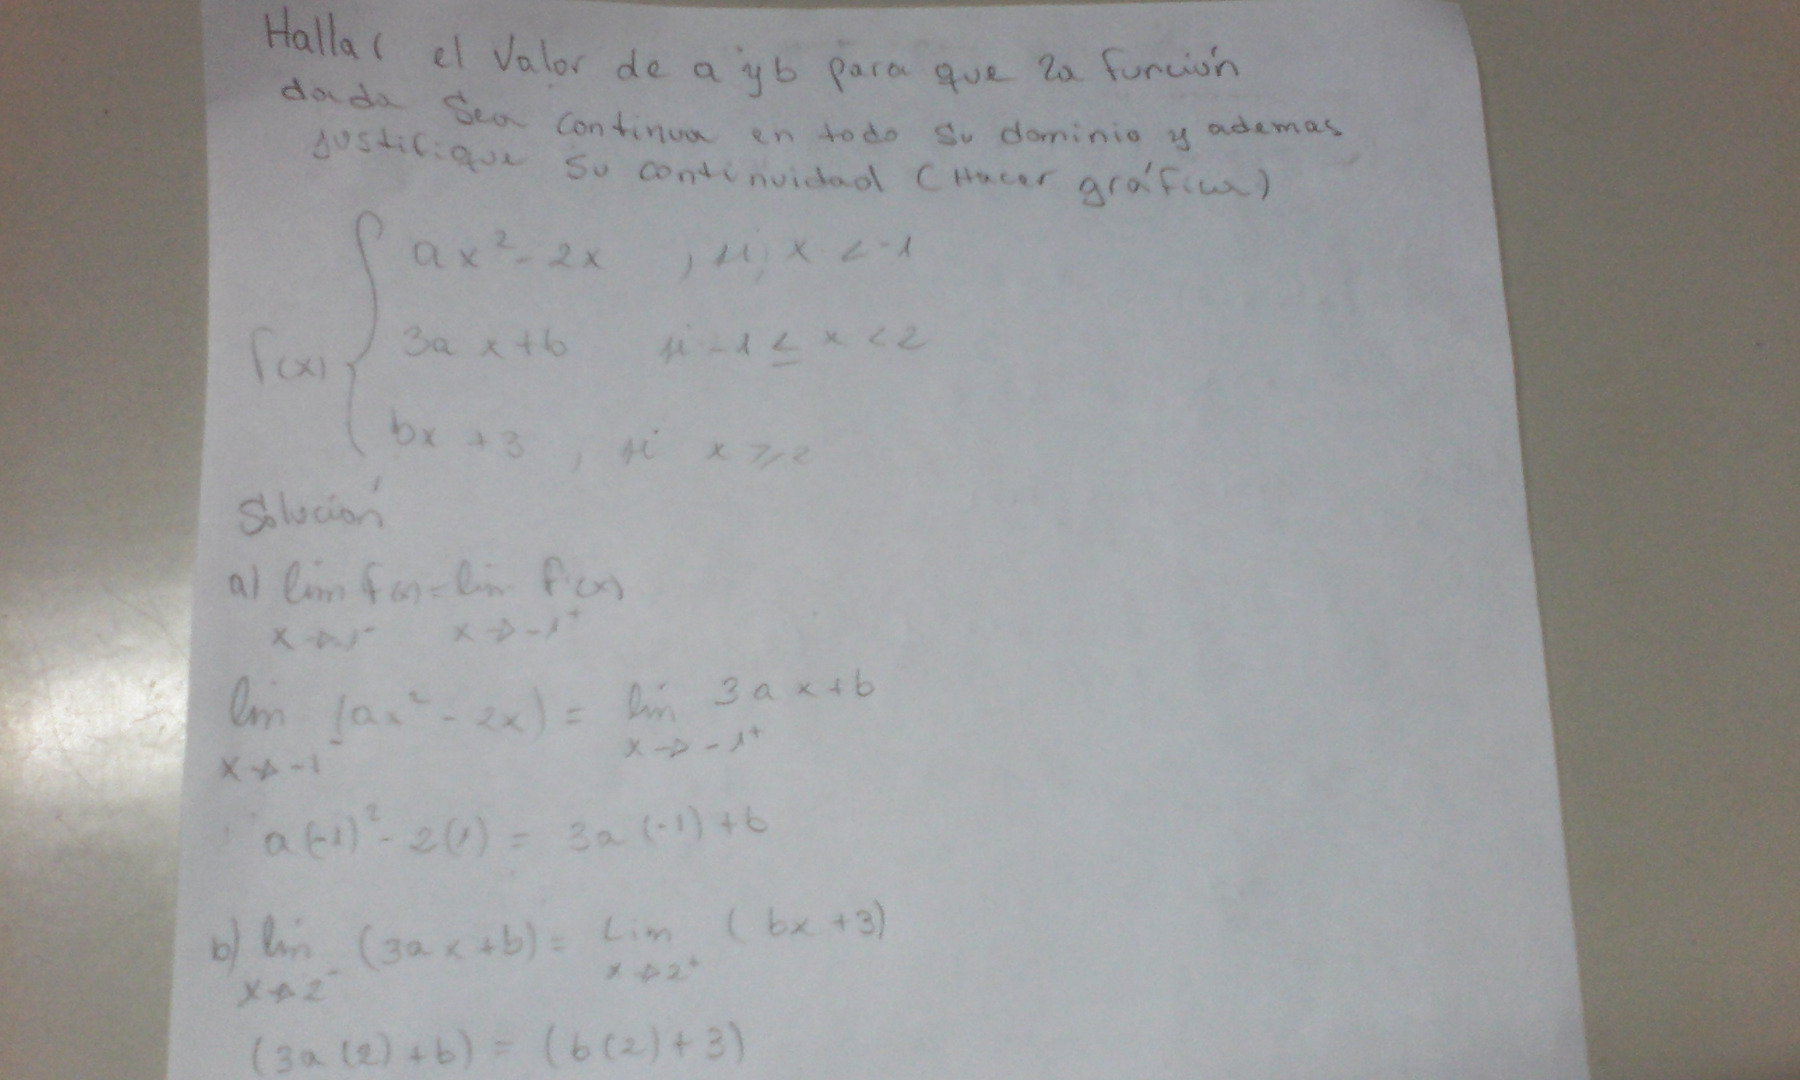 Hallar el Valor de a y b para que la función
dada Sea continua en todo su dominio y ademas
justifique su continuidad (Hacer gráfica)
ax² - 2x , si x < -1
f(x) { 3a x + b si -1 ≤ x < 2
bx + 3 , si x ≥ 2
Solución
a) lim f(x) = lim f(x)
x→-1⁻ x→-1⁺
lim (ax² - 2x) = lim 3a x + b
x→-1⁻ x→-1⁺
a(-1)² - 2(1) = 3a (-1) + b
b) lim (3a x + b) = Lim (bx + 3)
x→2⁻ x→2⁺
(3a (2) + b) = (b(2) + 3)